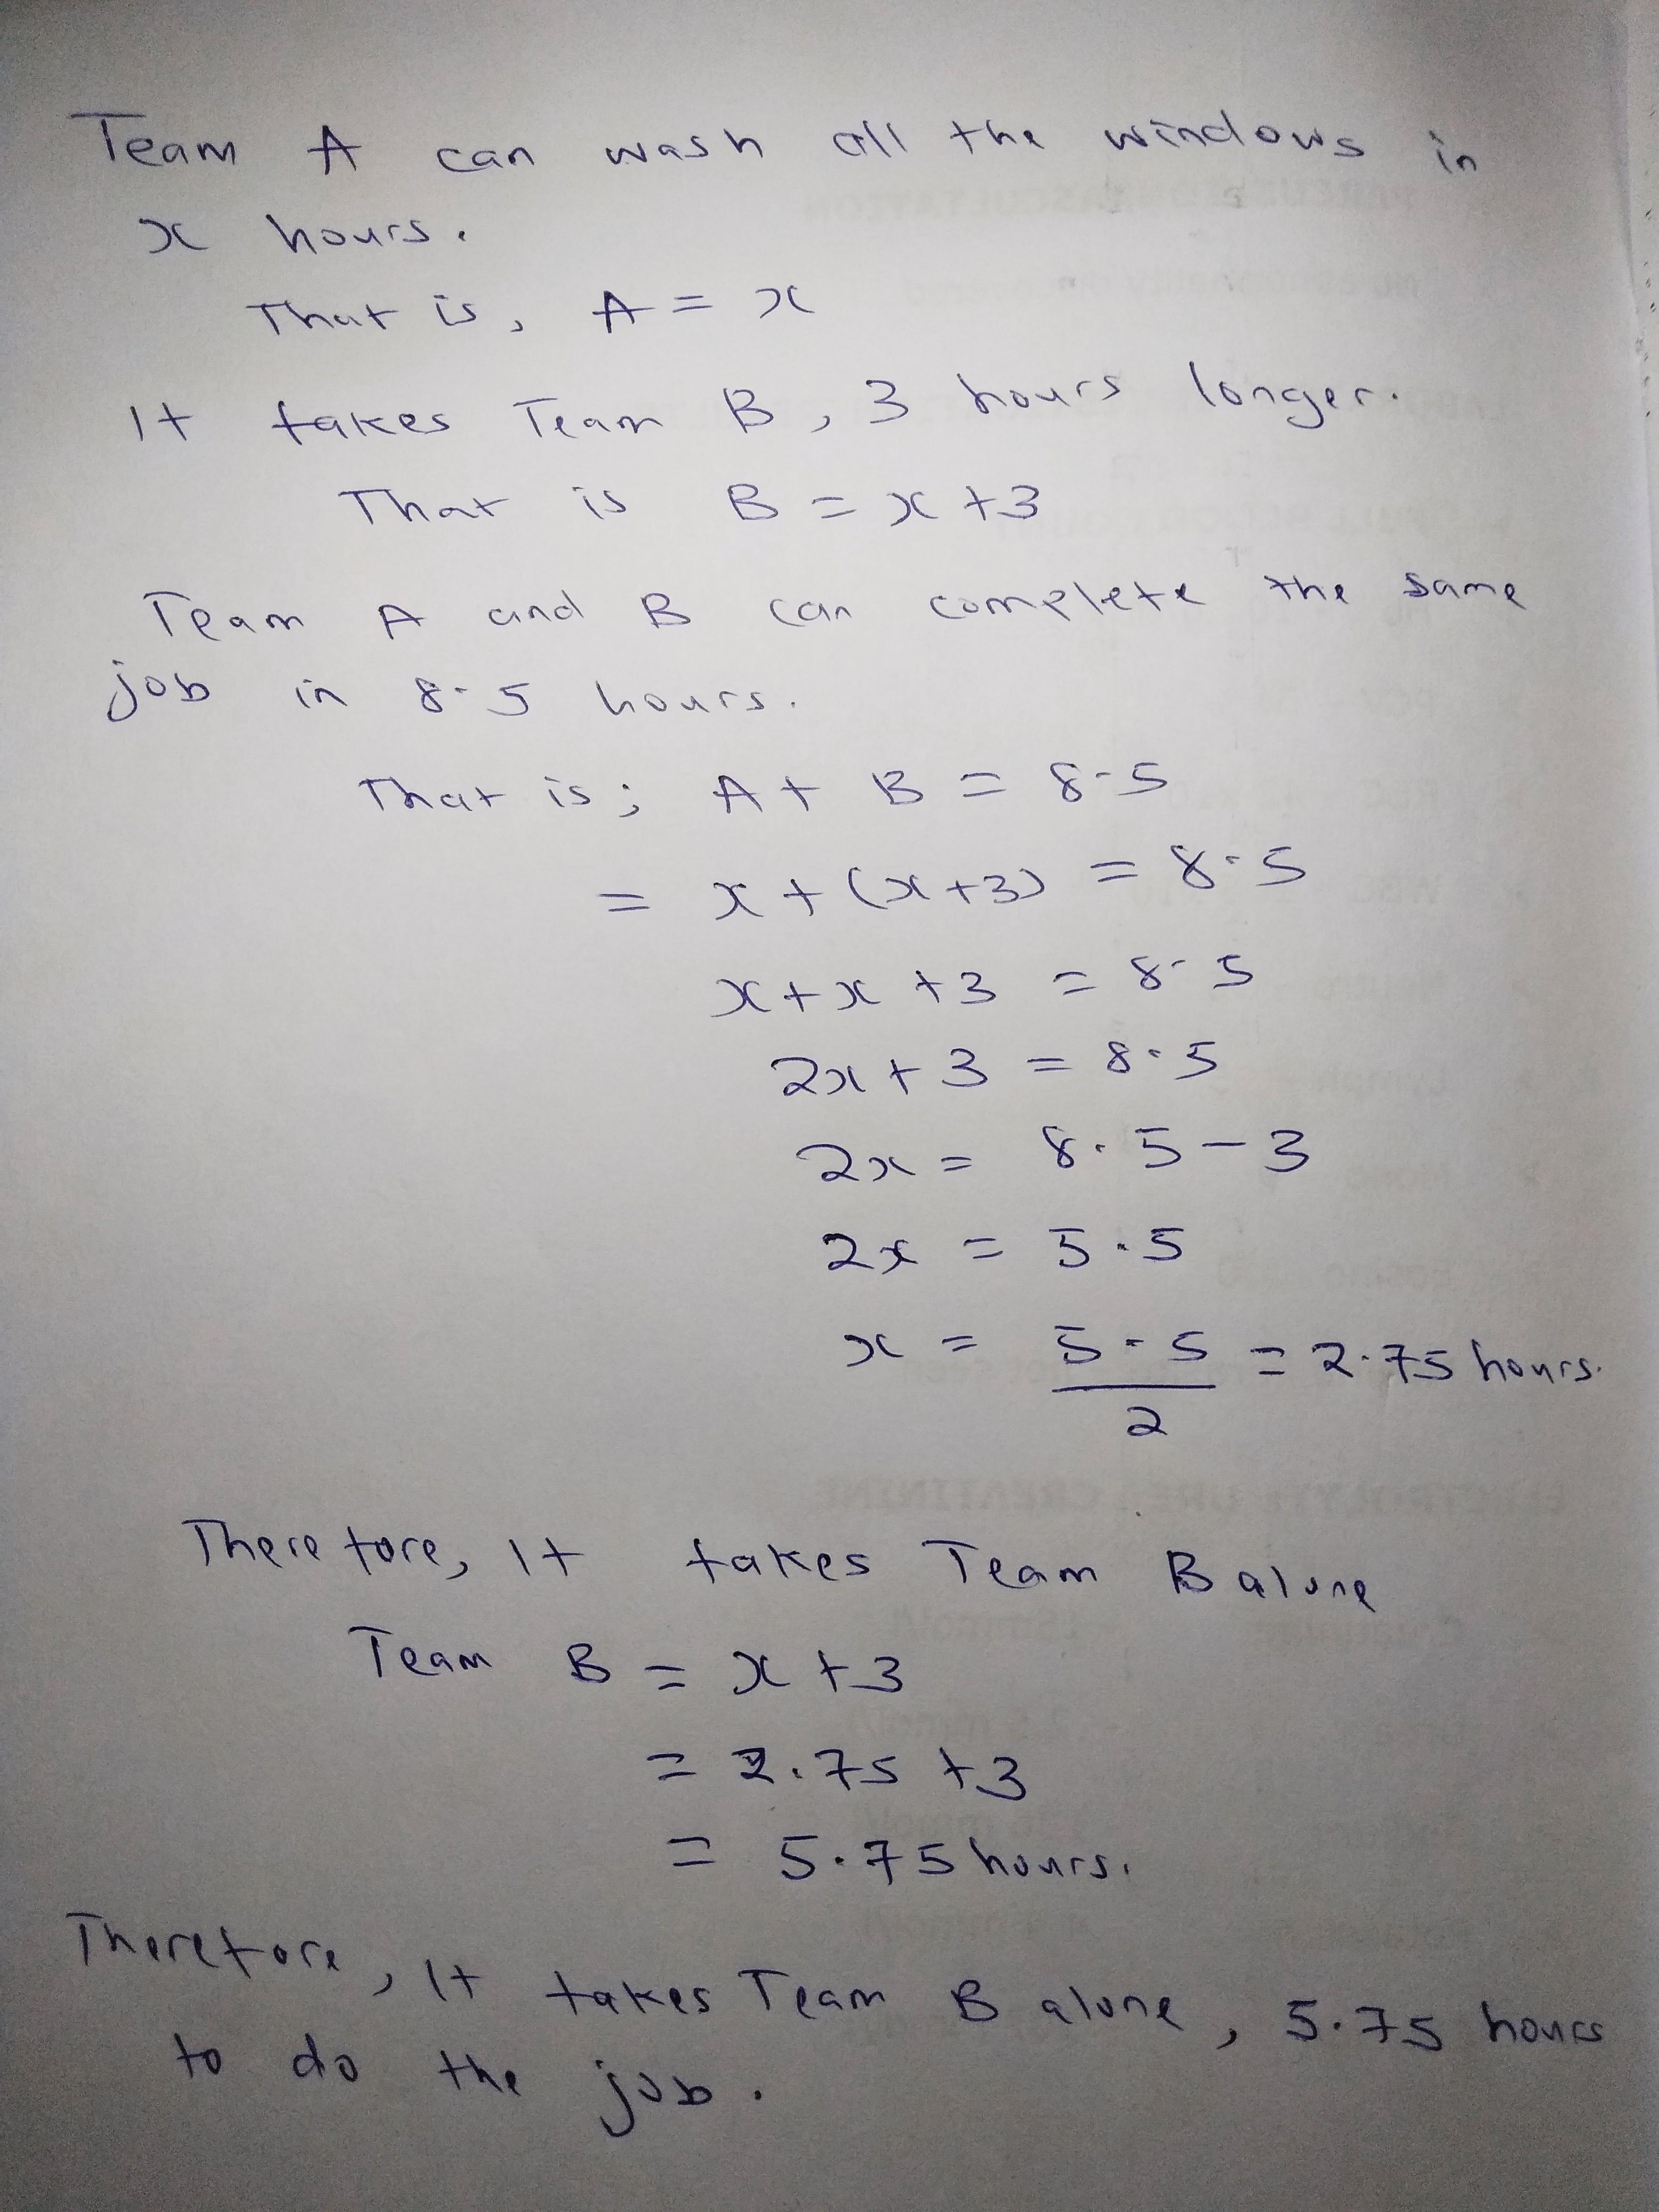 Team A can wash all the windows in
x hours.
That is, A = x
It takes Team B, 3 hours longer.
That is B = x + 3
Team A and B can complete the same
job in 8.5 hours.
That is; A + B = 8.5
= x + (x + 3) = 8.5
x + x + 3 = 8.5
2x + 3 = 8.5
2x = 8.5 - 3
2x = 5.5
x = 5.5/2 = 2.75 hours.
Therefore, It takes Team B alone
Team B = x + 3
= 2.75 + 3
= 5.75 hours.
Therefore, It takes Team B alone, 5.75 hours
to do the job.